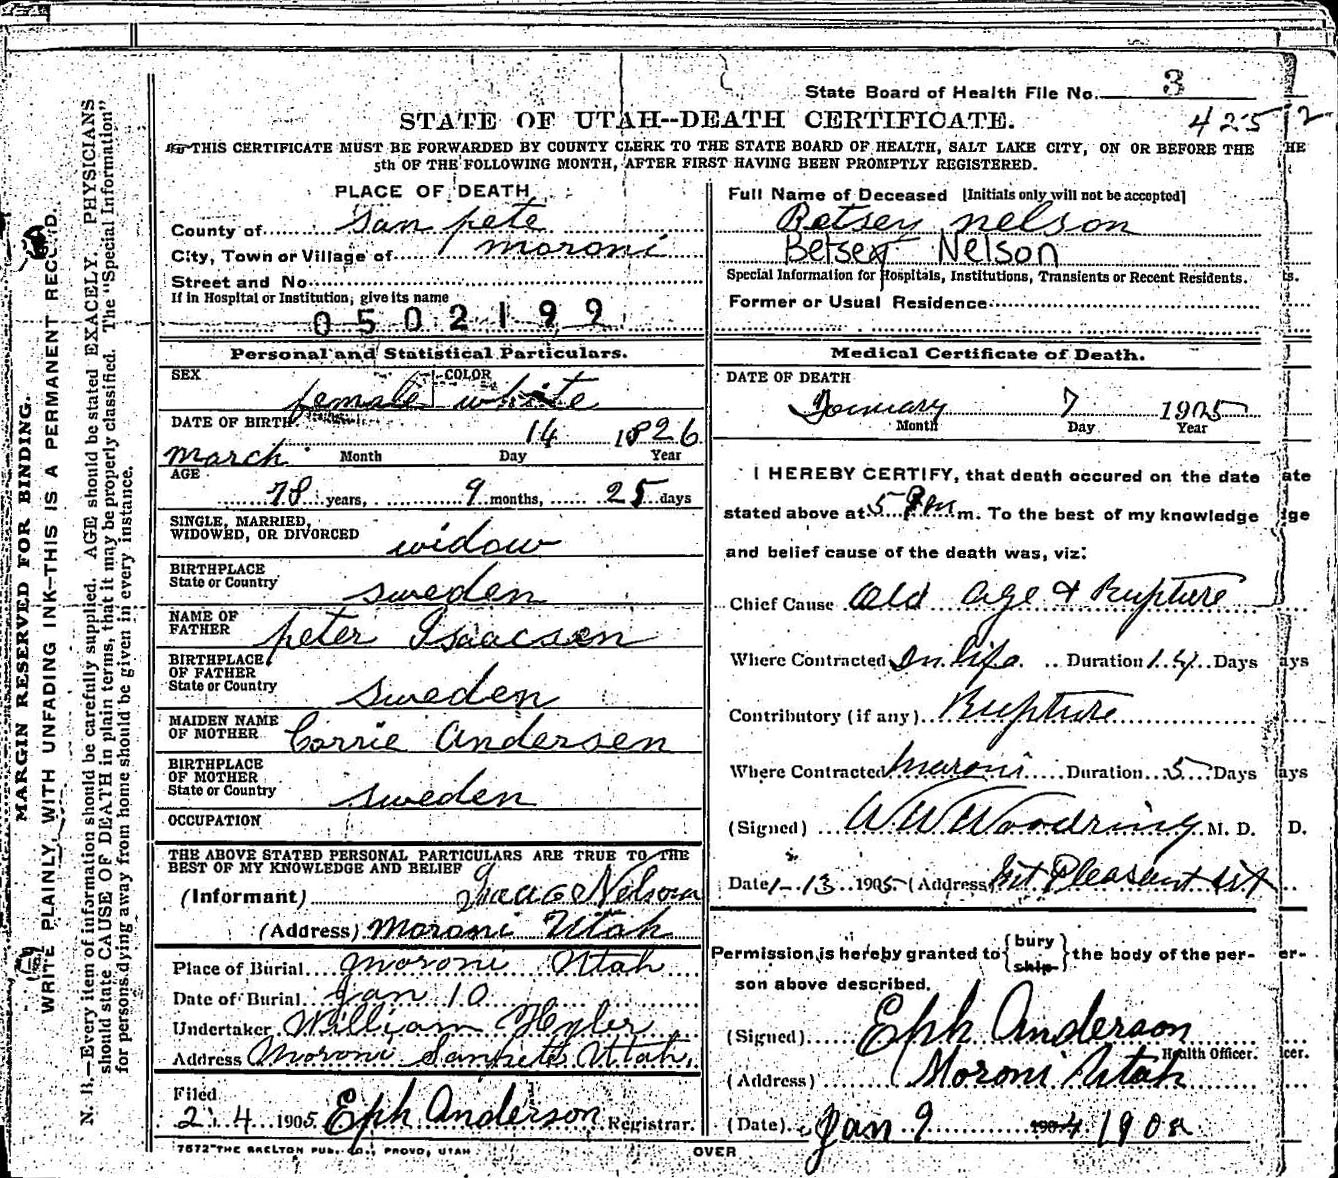 State Board of Health File No. 3
4252
STATE OF UTAH--DEATH CERTIFICATE.
THIS CERTIFICATE MUST BE FORWARDED BY COUNTY CLERK TO THE STATE BOARD OF HEALTH, SALT LAKE CITY, ON OR BEFORE THE
5th OF THE FOLLOWING MONTH, AFTER FIRST HAVING BEEN PROMPTLY REGISTERED.
MARGIN RESERVED FOR BINDING.
WRITE PLAINLY, WITH UNFADING INK—THIS IS A PERMANENT RECORD.
N. B.—Every item of information should be carefully supplied. AGE should be stated EXACELY. PHYSICIANS
should state CAUSE OF DEATH in plain terms, that it may be properly classified. The "Special Information"
for persons dying away from home should be given in every instance.
PLACE OF DEATH
County of San pete
City, Town or Village of moroni
Street and No.
If in Hospital or Institution, give its name
0502199
Personal and Statistical Particulars.
SEX female COLOR white
DATE OF BIRTH
march 14 1826
Month Day Year
AGE
78 years, 9 months, 25 days
SINGLE, MARRIED,
WIDOWED, OR DIVORCED widow
BIRTHPLACE
State or Country sweden
NAME OF
FATHER peter Isaacsen
BIRTHPLACE
OF FATHER
State or Country sweden
MAIDEN NAME
OF MOTHER Corrie andersen
BIRTHPLACE
OF MOTHER
State or Country sweden
OCCUPATION
THE ABOVE STATED PERSONAL PARTICULARS ARE TRUE TO THE
BEST OF MY KNOWLEDGE AND BELIEF
(Informant) Isaac Nelson
(Address) Moroni Utah
Place of Burial moroni Utah
Date of Burial Jan 10
Undertaker William Hyler
Address Moroni Sanpete Utah,
Filed
2 4 1905 Eph Anderson Registrar.
7672 THE SKELTON PUB. CO., PROVO, UTAH
Full Name of Deceased [Initials only will not be accepted]
Betsey nelson
Betsey Nelson
Special Information for Hospitals, Institutions, Transients or Recent Residents.
Former or Usual Residence
Medical Certificate of Death.
DATE OF DEATH
January 7 1905
Month Day Year
I HEREBY CERTIFY, that death occured on the date
stated above at 5 Pm m. To the best of my knowledge
and belief cause of the death was, viz:
Chief Cause Old age & Rupture
Where Contracted In life Duration Days
Contributory (if any) Rupture
Where Contracted Maroni Duration 5 Days
(Signed) W W Woodring M. D.
Date 1-13 1905 (Address) Mt Pleasant Ut
Permission is hereby granted to { bury ship } the body of the per-
son above described.
(Signed) Eph Anderson
Health Officer.
(Address) Moroni Utah
(Date) Jan 9 1904 190
OVER
HE
s.
ate
ge
ays
ays
D.
er-
cer.